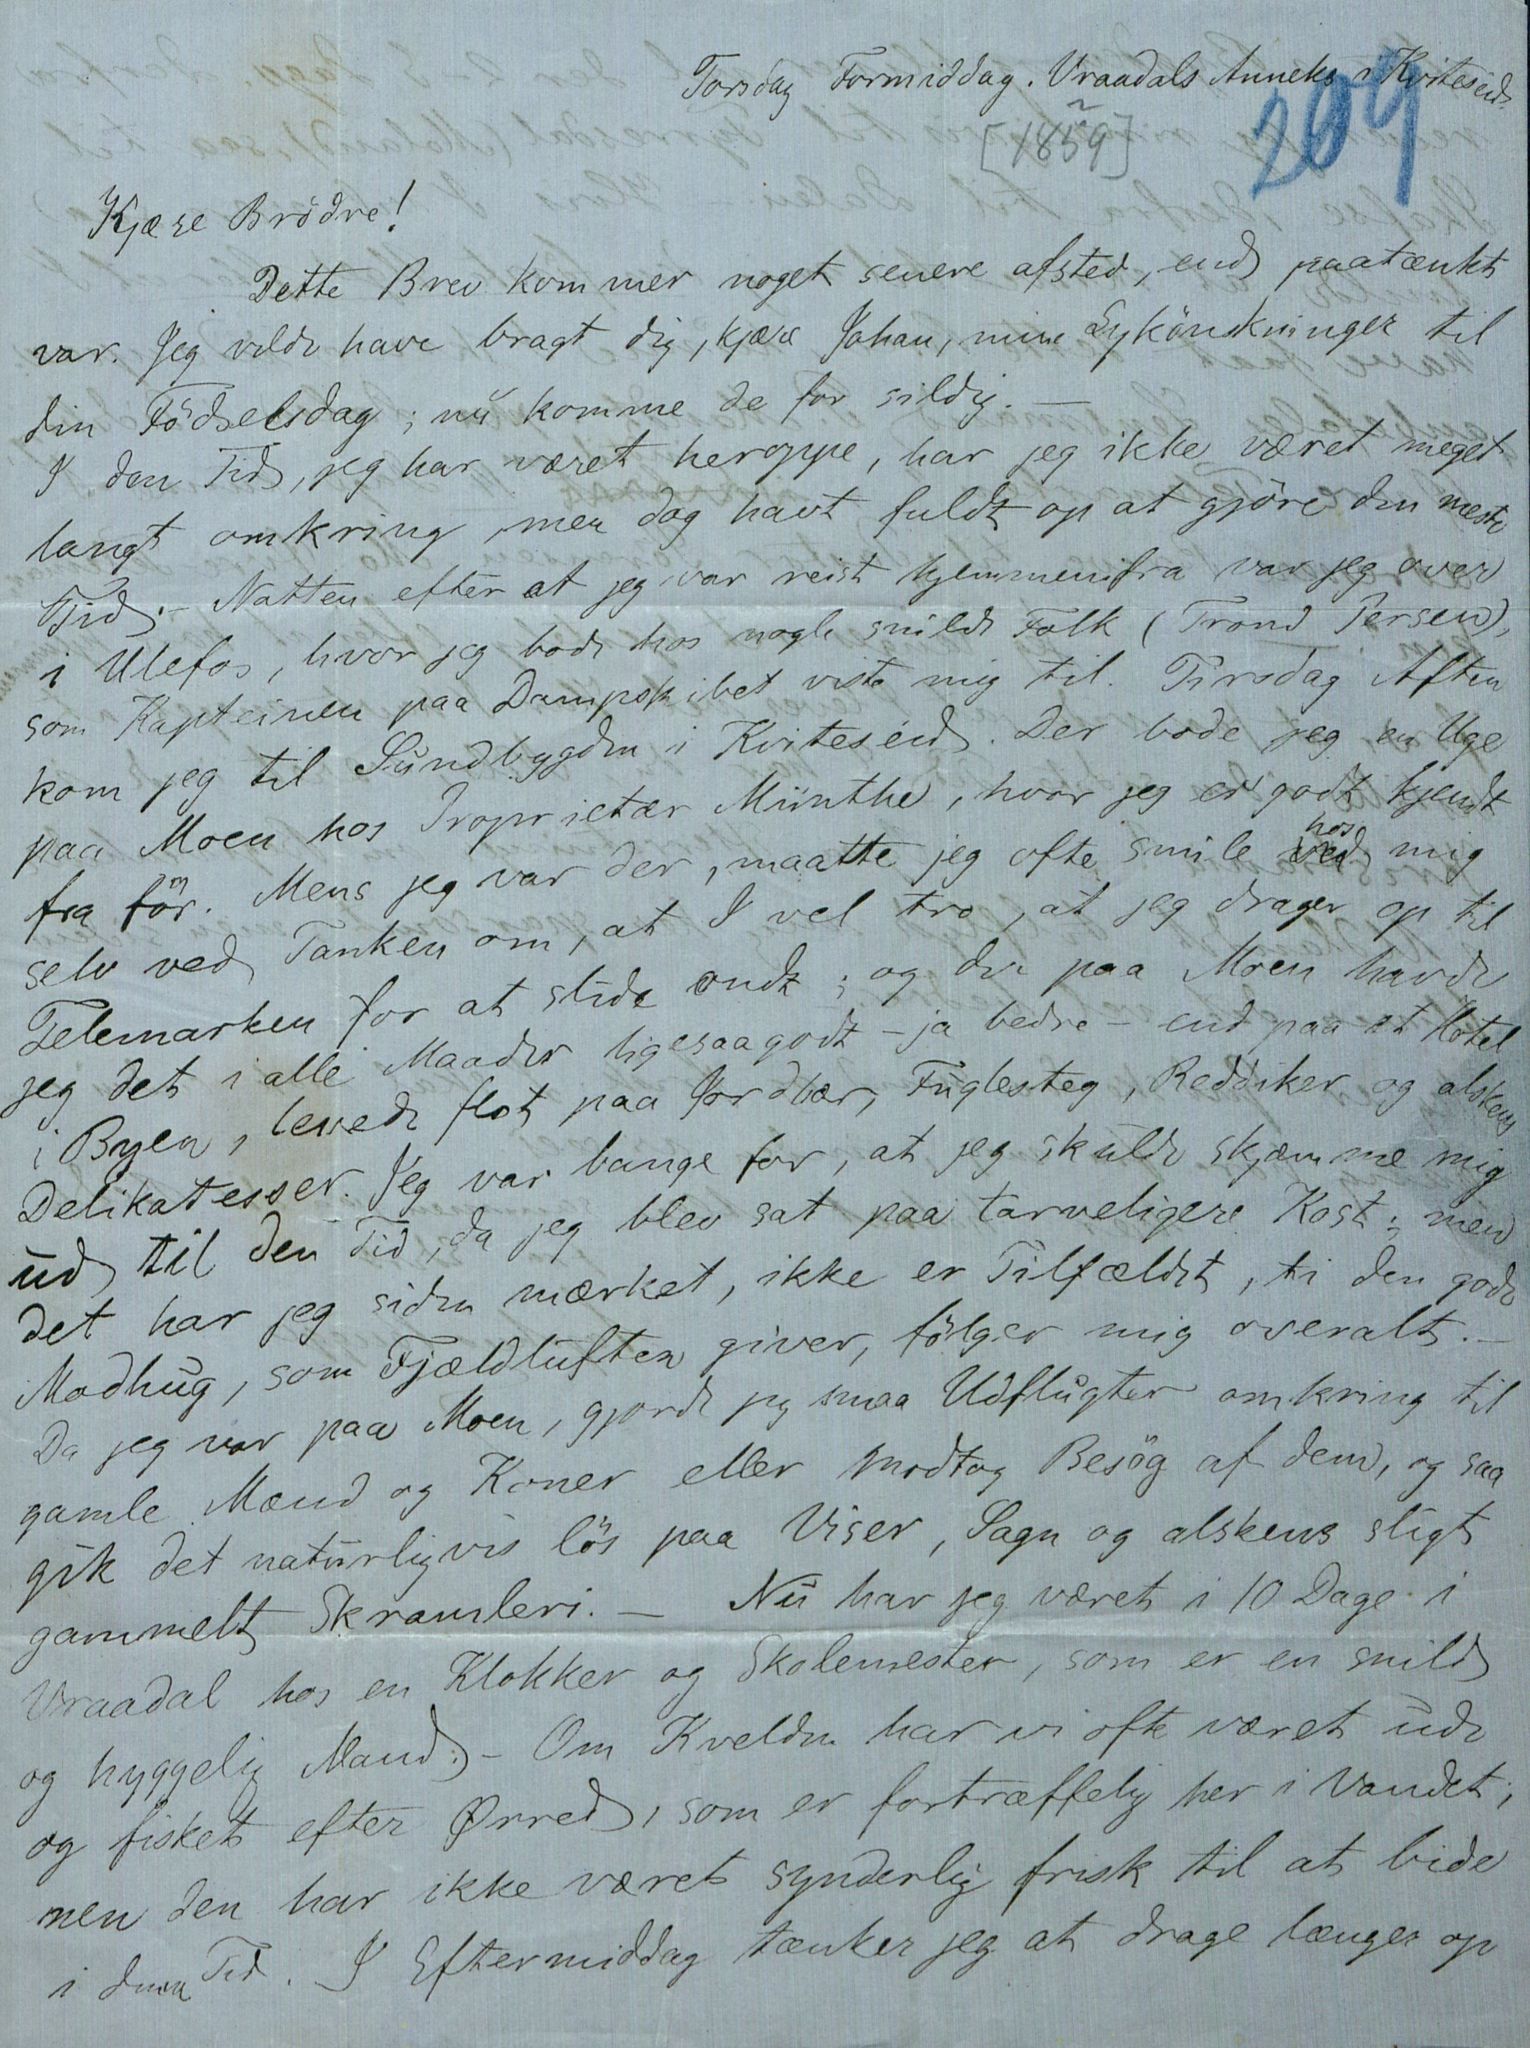 Torsdag Formiddag. Vraadals Anneks i Kviteseid.
[1859]
209
Kjære Brödre!
Dette Brev kommer noget senere afsted, end paatænkt
var. Jeg vilde have bragt dig, kjære Johan, mine Lykönskninger til
din Födselsdag; nu komme de for sildig. —
I den Tid, jeg har været heroppe, har jeg ikke været meget
langt omkring, men dog havt fuldt op at gjöre den meste
Tid. — Natten efter at jeg var reist hjemmenifra var jeg over
i Ulefos, hvor jeg bode hos nogle snilde Folk (Trond Persen),
som Kapteinen paa Dampskibet viste mig til. Tirsdag Aften
kom jeg til Sundbygden i Kviteseid. Der bode jeg en Uge
paa Moen hos Proprietær Münthe, hvor jeg er godt kjendt
fra för. Mens jeg var der, maatte jeg ofte smile ved hos mig
selv ved Tanken om, at I vel tro, at jeg drager op til
Telemarken for at slide ondt; og der paa Moen havde
jeg det i alle Maader ligesaagodt — ja bedre — end paa et Hotel
i Byen, levede flot paa Jordbær, Fuglesteg, Reddiker og alskens
Delikatesser. Jeg var bange for, at jeg skulde skjæmme mig
ud til den Tid, da jeg blev sat paa tarveligere Kost; men
det har jeg siden mærket, ikke er Tilfældet, ti den gode
Madhug, som Fjældluften giver, fölger mig overalt. —
Da jeg var paa Moen, gjorde jeg smaa Udflugter omkring til
gamle Mænd og Koner eller modtog Besög af dem, og saa
gik det naturligvis lös paa Viser, Sagn og alskens sligt
gammelt Skramleri. — Nu har jeg været i 10 Dage i
Vraadal hos en Klokker og Skolemester, som er en snild
og hyggelig Mand. — Om Kvelden har vi ofte været ude
og fisket efter Ørred, som er fortræffelig her i Vandet;
men den har ikke været synderlig frisk til at bide
i denne Tid. I Eftermiddag tænker jeg at drage længer op